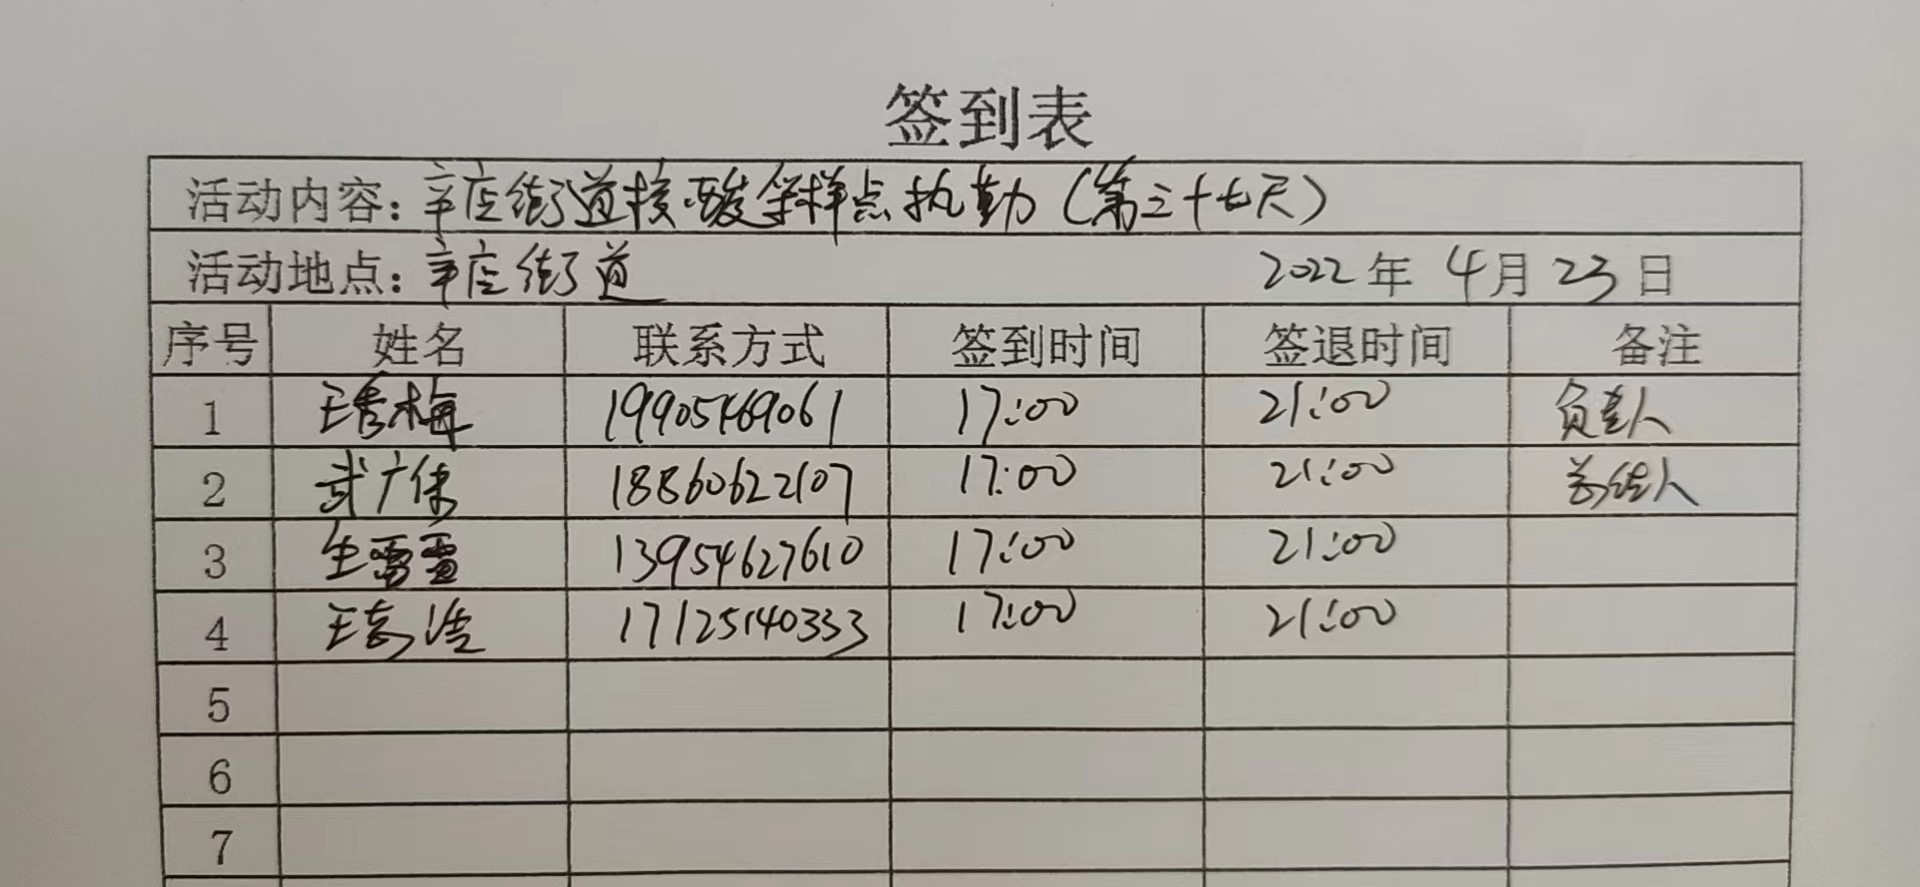 签到表
活动内容：辛店街道核酸采样点执勤（第三十七天）
活动地点：辛店街道 2022年 4月 23日
序号 姓名 联系方式 签到时间 签退时间 备注
1 王秀梅 19905469061 17:00 21:00 负责人
2 武广保 18860622107 17:00 21:00 总结人
3 生雷雷 13954627610 17:00 21:00
4 王 17125140333 17:00 21:00
5
6
7